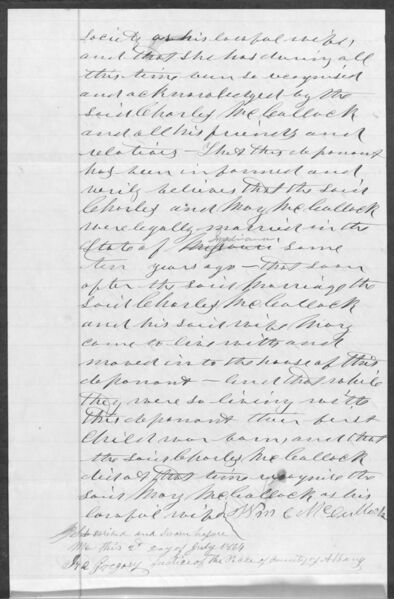 society as his lawful wife,
and that she has during all
this time been so recognised
and acknowledged by the
said Charles McCullock
and all his friends and
relations - That this deponant
has been informed and
verily believes that the said
Charles and Mary McCullock
were legally married in the
State of Missouri Indiana some
ten years ago - that soon
after the said marriage the
said Charles McCullock
and his said wife Mary
came to live with and
moved into the house of this
deponant - And that while
they were so living with
this deponant their first
Child was born, and that
the said Charles McCullock
did at that time recognise the
said Mary McCullock as his
lawful wife Wm C McCullock
Subscribed and Sworn before
Me this 2d day of July 1864
Gregory Justice of the Peace of County of